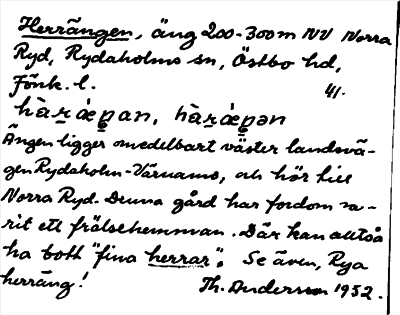 Herrängen, äng 200-300m NV Norra
Ryd, Rydaholms sn, Östbo hd,
Jönk. l. 41.
Ängen ligger omedelbart väster landsvä-
gen Rydaholm-Värnamo, och hör till
Norra Ryd. Denna gård har fordom va-
rit ett frälsehemman. Där kan alltså
ha bott "fina herrar". Se även, Rya
herräng! Th. Andersson 1952.